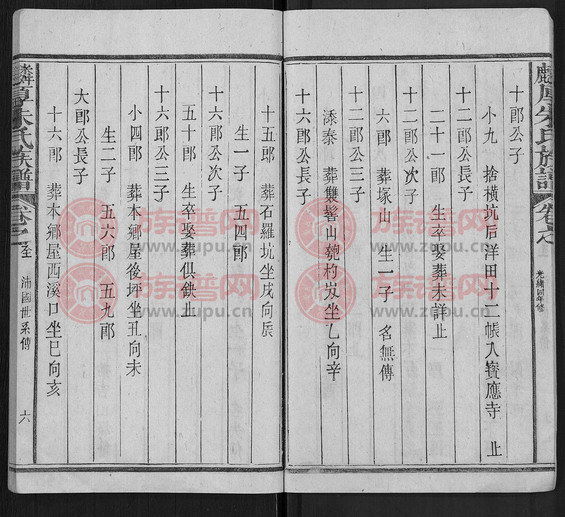 厚朱氏族譜
光緒四年修
十郎公子
小九 捨橫坑后洋田十二帳入寶應寺 止
十二郎公長子
二十一郎 生卒娶葬未詳止
十二郎公次子
十二郎 葬塚山 生一子 名無傳
十二郎公三子
添泰 葬雙髻山 坐乙向辛
十六郎公長子
十五郎 葬石羅坑坐戌向辰
生一子 五四郎
十六郎公次子
五十郎 生卒娶葬俱缺止
十六郎公三子
小四郎 葬本鄉屋後坪坐丑向未
生二子 五六郎 五九郎
大郎公長子
十六郎 葬本鄉屋西溪口坐巳向亥
厚朱氏族譜
浦國世系傳
六
族谱网
www.zupu.cn
族谱网
www.zupu.cn
族谱网
www.zupu.cn
族谱网
www.zupu.cn